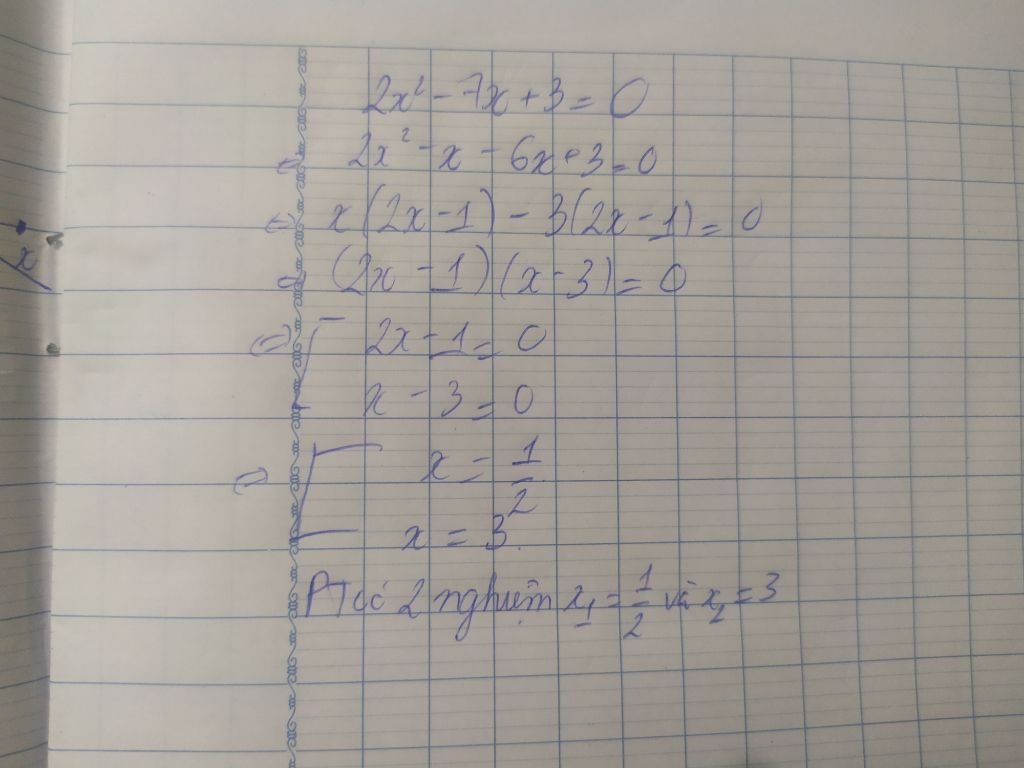 2x² - 7x + 3 = 0
⇔ 2x² - x - 6x + 3 = 0
⇔ x(2x - 1) - 3(2x - 1) = 0
⇔ (2x - 1)(x - 3) = 0
⇔ [ 2x - 1 = 0
x - 3 = 0
⇔ [ x = 1/2
x = 3.
PT có 2 nghiệm x₁ = 1/2 và x₂ = 3
x